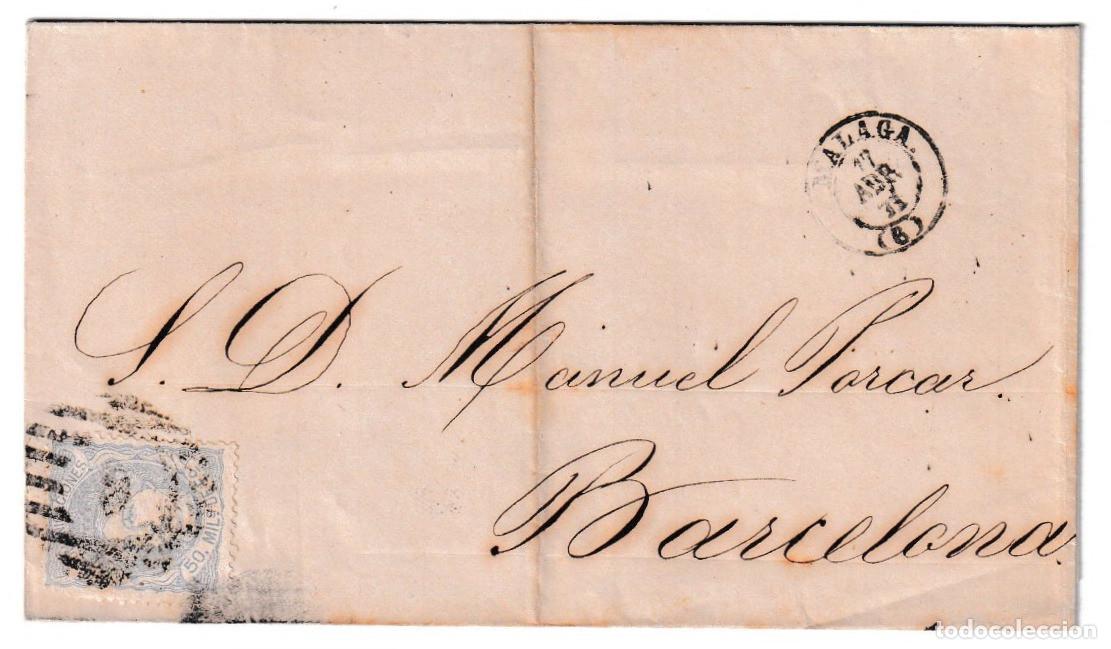 MALAGA.
17
ABR
71
(6)
S. D. Manuel Porcar.
Barcelona.
COMUNICACIONES
ESPAÑA
50. MILS.
todocoleccion